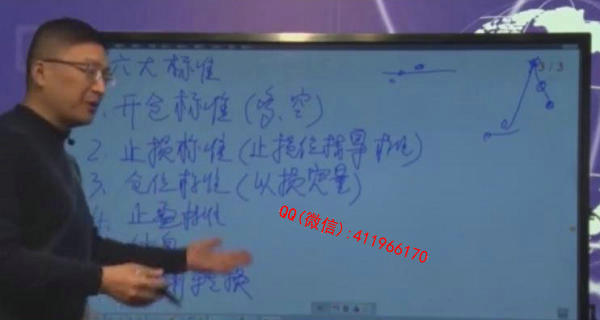 六大标准
3/3
1. 开仓标准(多、空)
2. 止损标准(止损位指导标准)
3. 仓位标准(以损定量)
4. 止盈标准
QQ(微信):411966170